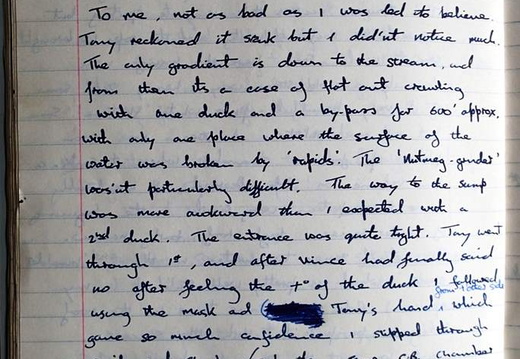 To me, not as bad as I was led to believe.
Tony reckoned it stank but I did'nt notice much.
The only gradient is down to the stream, and
from then its a case of flat out crawling
with one duck and a by-pass for 600' approx.
with only one place where the surface of the
water was broken by 'rapids'. The 'Nutmeg-grinder'
was'nt particularly difficult. The way to the sump
was more awkward than I expected with a
2nd duck. The entrance was quite tight. Tony went
through 1st, and after Vince had finally said
no after feeling the t° of the duck, I followed
from other side
using the mask and Tony's hand, which
gave so much confidence I slipped through
chamber